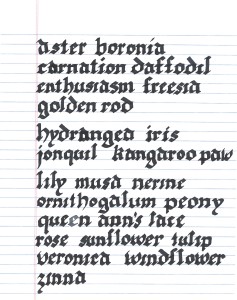 aster boronia
carnation daffodil
enthusiasm freesia
golden rod
hydrangea iris
jonquil kangaroo paw
lily musa nerine
ornithogalum peony
queen ann's lace
rose sunflower tulip
veronica windflower
zinna